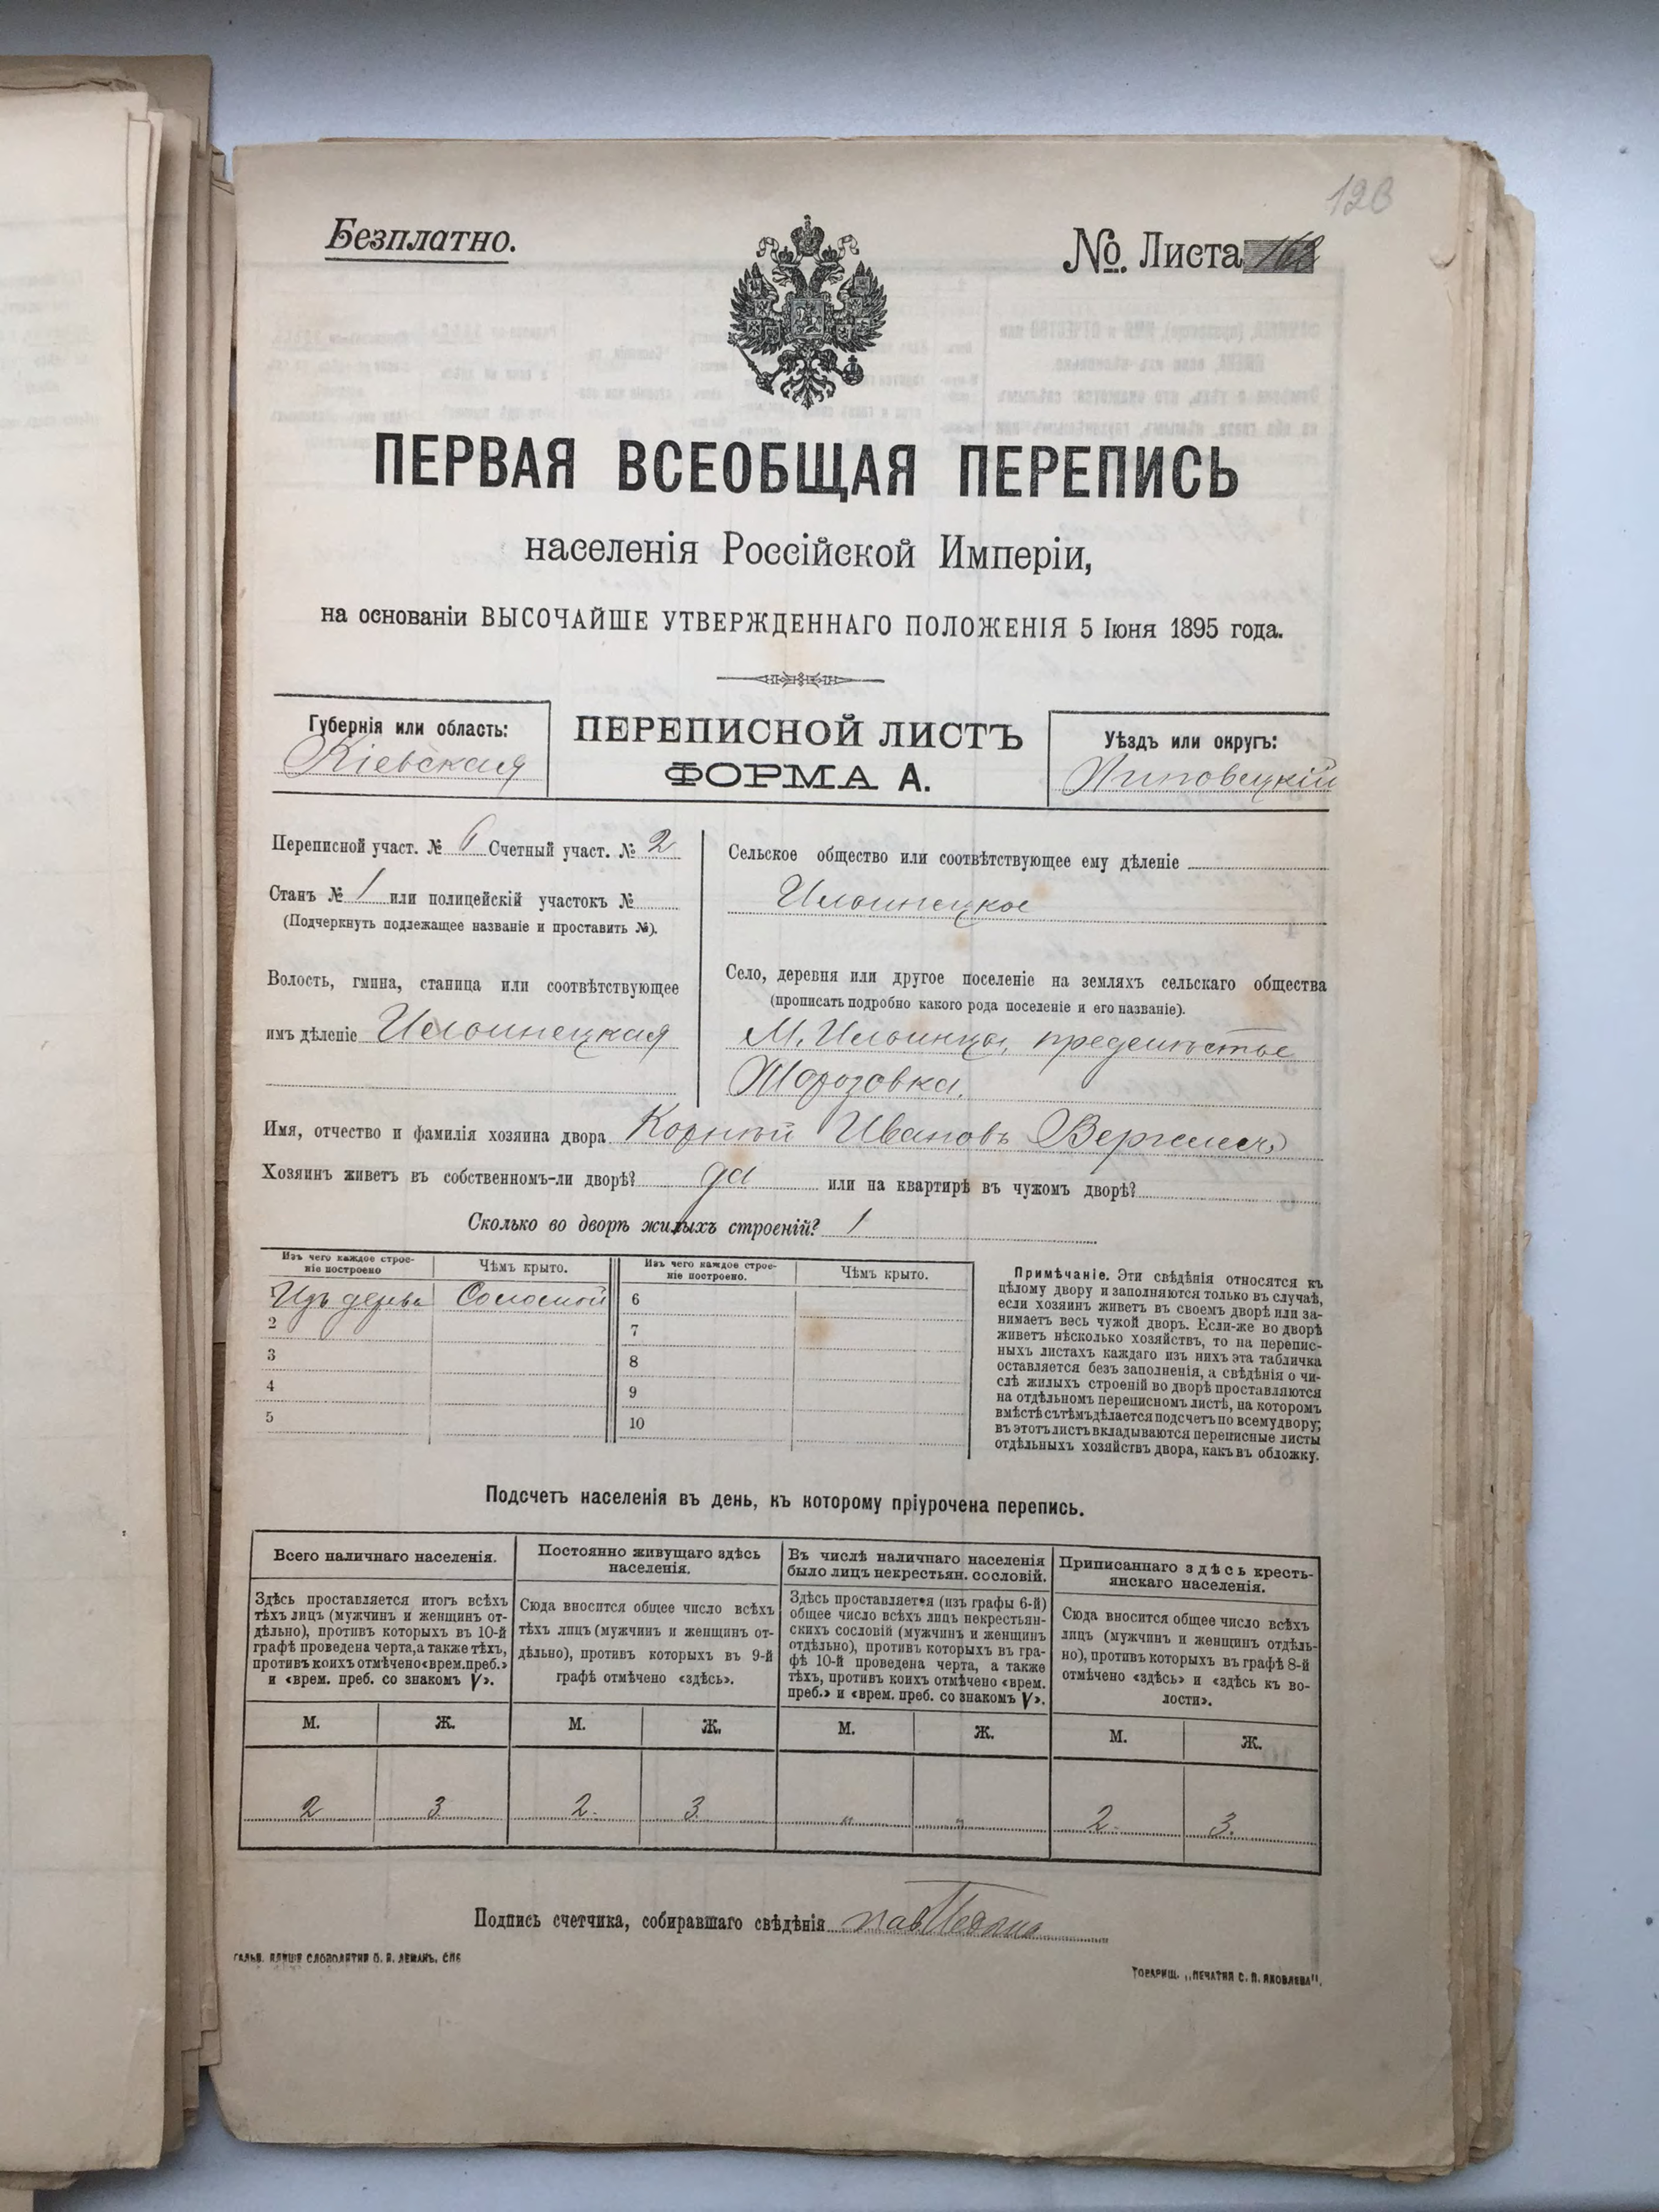 Безплатно.
№ Листа 168
ПЕРВАЯ ВСЕОБЩАЯ ПЕРЕПИСЬ
населенія Россійской Имперіи,
на основаніи ВЫСОЧАЙШЕ УТВЕРЖДЕННАГО ПОЛОЖЕНІЯ 5 Іюня 1895 года.
Губернія или область:
Кіевская
ПЕРЕПИСНОЙ ЛИСТЪ
ФОРМА А.
Уѣздъ или округъ:
Липовецкій
Переписной участ. № 6 Счетный участ. № 2
Станъ № 1 или полицейскій участокъ №
(Подчеркнуть подлежащее названіе и проставить №).
Волость, гмина, станица или соотвѣтствующее
имъ дѣленіе Ильинецкая
Сельское общество или соотвѣтствующее ему дѣленіе
Ильинецкое
Село, деревня или другое поселеніе на земляхъ сельскаго общества
(прописать подробно какого рода поселеніе и его названіе).
М. Ильинцы, предмѣстье
Морозовка.
Имя, отчество и фамилія хозяина двора Корній Ивановъ
Хозяинъ живетъ въ собственномъ-ли дворѣ? да или на квартирѣ въ чужомъ дворѣ?
Сколько во дворѣ жилыхъ строеній? 1
Изъ чего каждое строе-
ніе построено
Чѣмъ крыто.
Изъ чего каждое строе-
ніе построено.
Чѣмъ крыто.
Изъ дерева Соломой 6
2 7
3 8
4 9
5 10
Примѣчаніе. Эти свѣдѣнія относятся къ
цѣлому двору и заполняются только въ случаѣ,
если хозяинъ живетъ въ своемъ дворѣ или за-
нимаетъ весь чужой дворъ. Если-же во дворѣ
живетъ нѣсколько хозяйствъ, то на перепис-
ныхъ листахъ каждаго изъ нихъ эта табличка
оставляется безъ заполненія, а свѣдѣнія о чи-
слѣ жилыхъ строеній во дворѣ проставляются
на отдѣльномъ переписномъ листѣ, на которомъ
вмѣстѣ съ тѣмъ дѣлается подсчетъ по всему двору;
въ этотъ листъ вкладываются переписные листы
отдѣльныхъ хозяйствъ двора, какъ въ обложку.
Подсчетъ населенія въ день, къ которому пріурочена перепись.
Всего наличнаго населенія.
Здѣсь проставляется итогъ всѣхъ
тѣхъ лицъ (мужчинъ и женщинъ от-
дѣльно), противъ которыхъ въ 10-й
графѣ проведена черта, а также тѣхъ,
противъ коихъ отмѣчено «врем. преб.»
и «врем. преб. со знакомъ V».
Постоянно живущаго здѣсь
населенія.
Сюда вносится общее число всѣхъ
тѣхъ лицъ (мужчинъ и женщинъ от-
дѣльно), противъ которыхъ въ 9-й
графѣ отмѣчено «здѣсь».
Въ числѣ наличнаго населенія
было лицъ некрестьян. сословій.
Здѣсь проставляется (изъ графы 6-й)
общее число всѣхъ лицъ некрестьян-
скихъ сословій (мужчинъ и женщинъ
отдѣльно), противъ которыхъ въ гра-
фѣ 10-й проведена черта, а также
тѣхъ, противъ коихъ отмѣчено «врем.
преб.» и «врем. преб. со знакомъ V».
Приписаннаго здѣсь кресть-
янскаго населенія.
Сюда вносится общее число всѣхъ
лицъ (мужчинъ и женщинъ отдѣль-
но), противъ которыхъ въ графѣ 8-й
отмѣчено «здѣсь» и «здѣсь къ во-
лости».
М. Ж. М. Ж. М. Ж. М. Ж.
2 3 2 3 " " 2 3
Подпись счетчика, собиравшаго свѣдѣнія
ГАЛЬВ. КЛИШЕ СЛОВОЛИТНИ О. И. ЛЕМАНЪ, СПБ
ТОВАРИЩ. „ПЕЧАТНЯ С. П. ЯКОВЛЕВА".